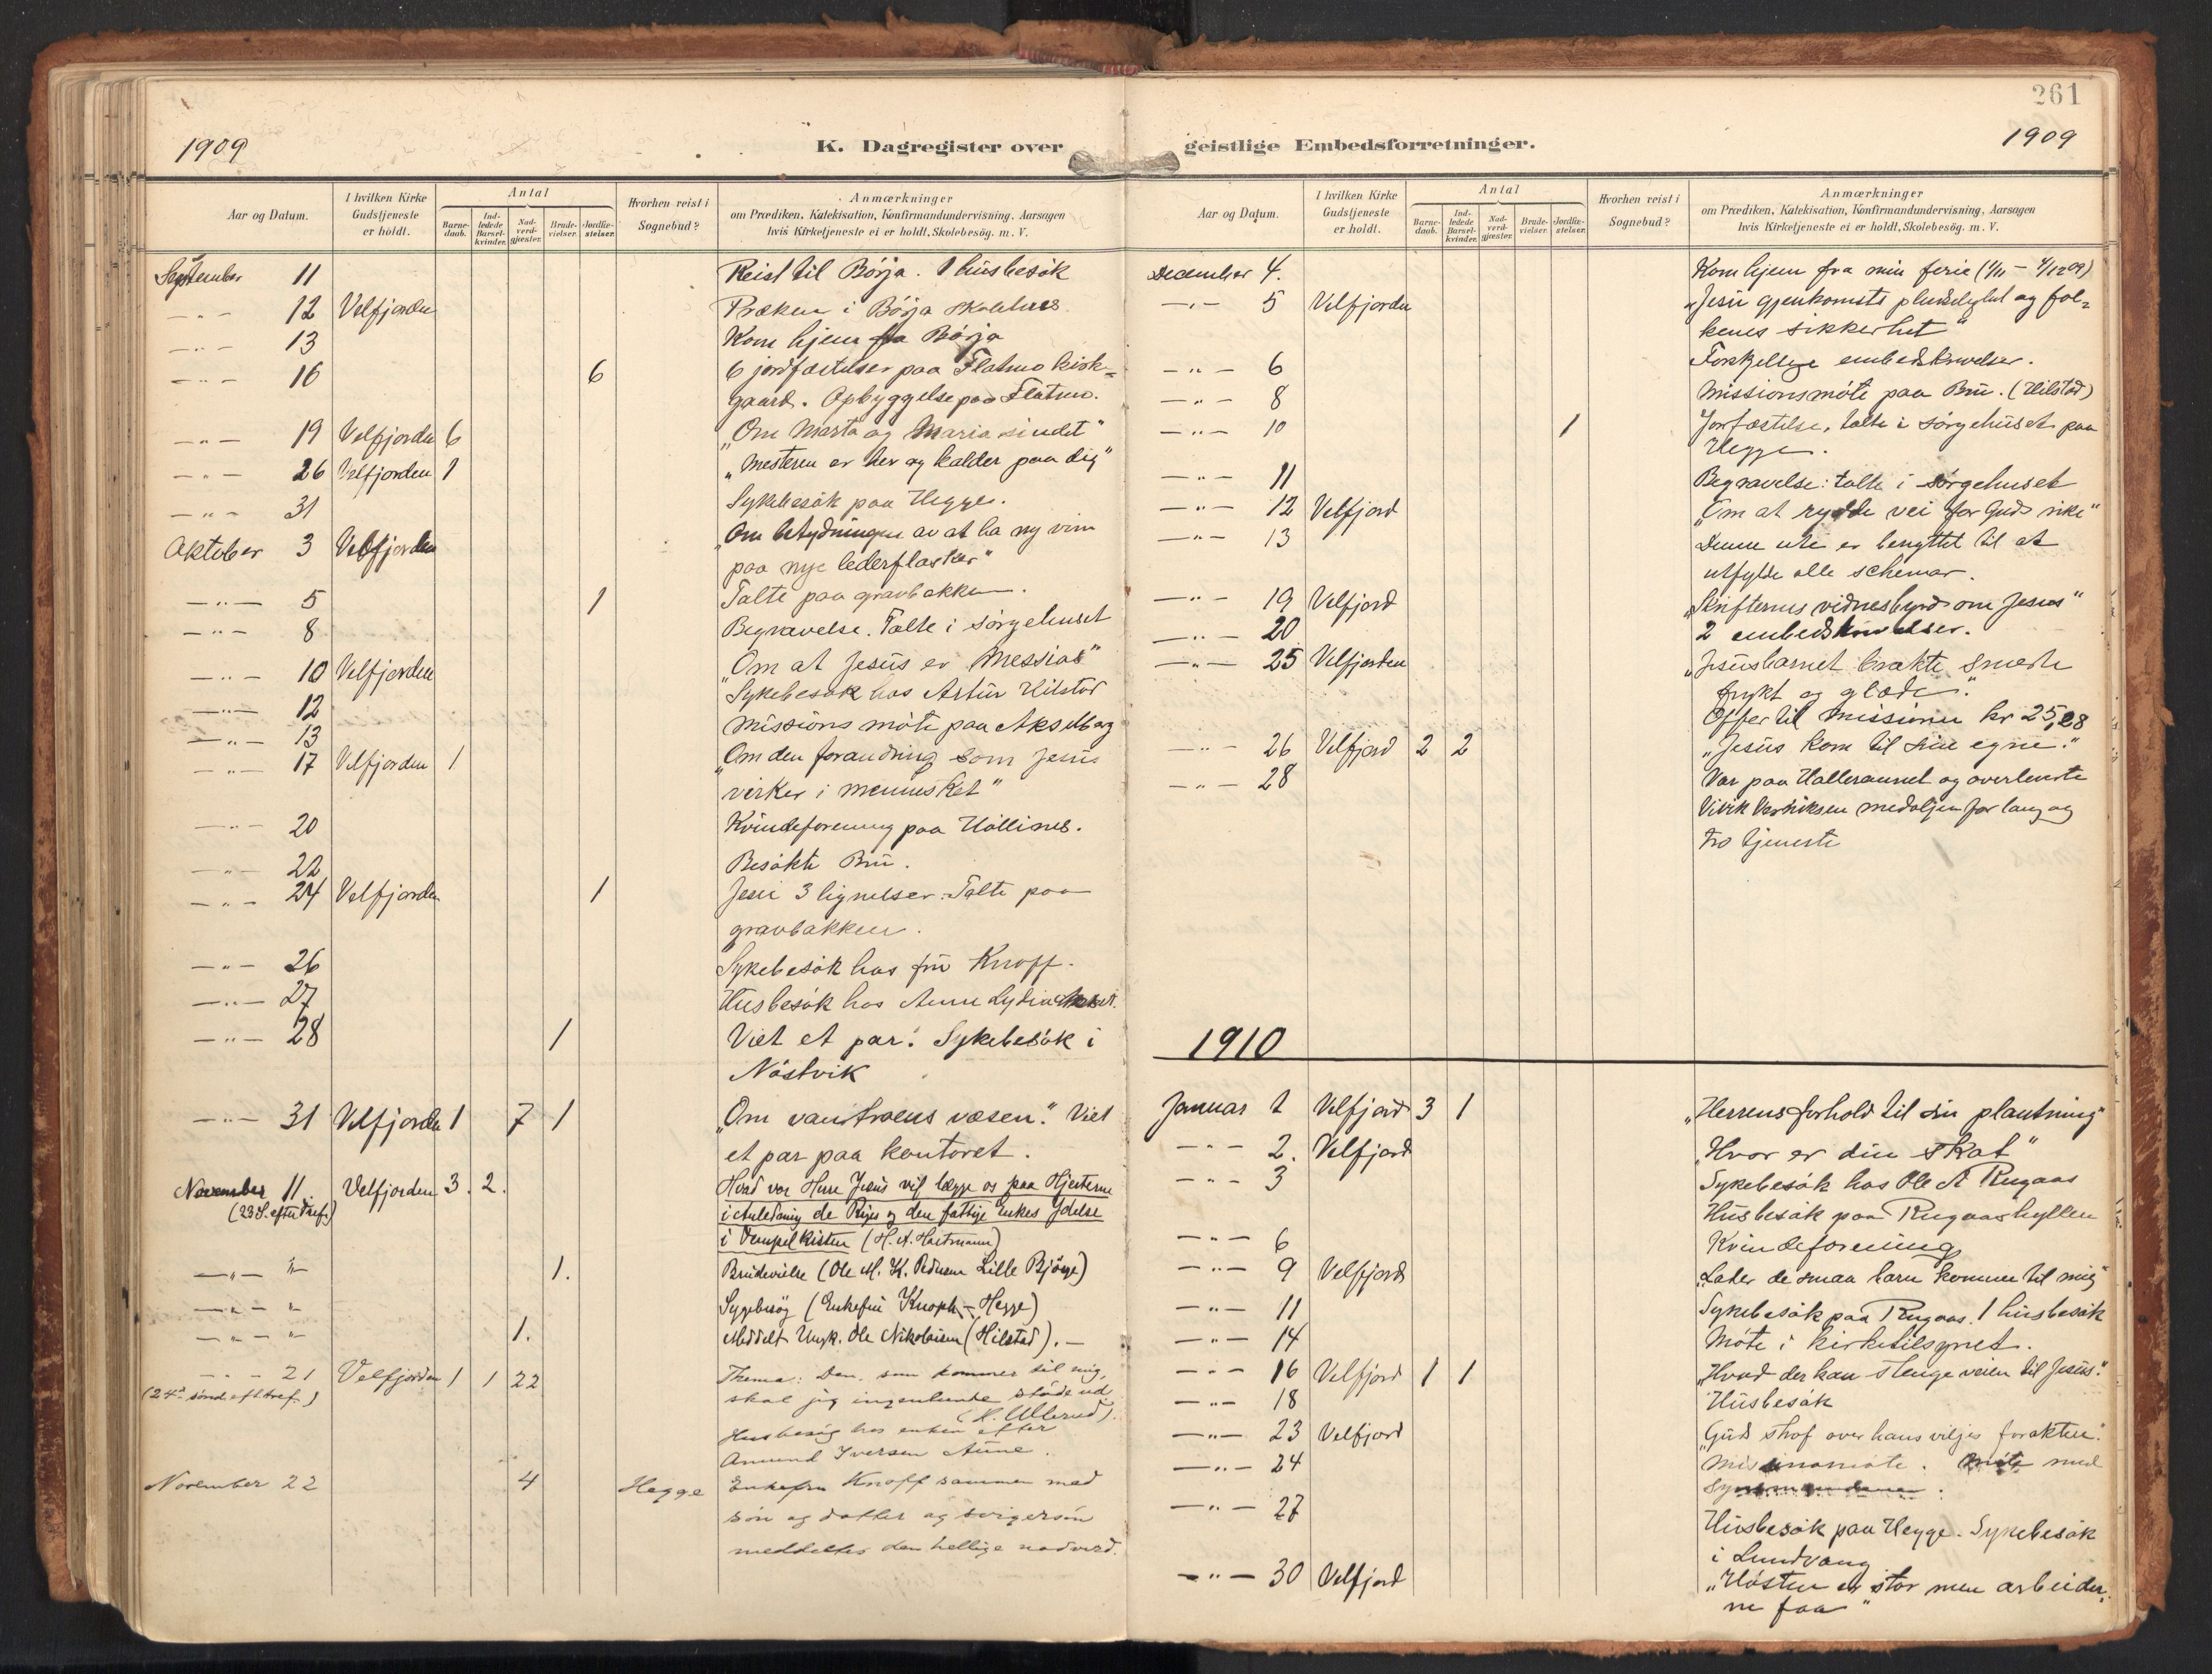 261
1909
K. Dagregister over geistlige Embedsforretninger.
1909
Aar og Datum.
I hvilken Kirke Gudstjeneste er holdt.
Antal
Barne-daab.
Ind-ledede Barsel-kvinder.
Nad-verd-gjæster.
Brude-vielser.
Jordfæ-stelser.
Hvorhen reist i Sognebud?
Anmærkninger
om Prædiken, Katekisation, Konfirmandundervisning, Aarsagen
hvis Kirketjeneste ei er holdt, Skolebesøg. m. V.
September 11 Reist til Börja. 1 husbesök
—"— 12 Velfjorden Præken i Börja skolehus
—"— 13 Kom hjem fra Börja
—"— 16 6 6 jordfæstelser paa Flatmo kirk=
gaard. Opbyggelse paa Flatmo.
—"— 19 Velfjorden 6 "Om Marta og Maria sindet"
—"— 26 Velfjorden 1 "Mesteren er her og kalder paa dig"
—"— 31 Sykebesök paa Hegge.
Oktober 3 Velfjorden "Om betydningen av at ha ny vin
paa nye lederflasker"
—"— 5 1 Talte paa gravbakken.
—"— 8 Begravelse. Talte i sörgehuset
—"— 10 Velfjorden "Om at Jesus er Messias"
—"— 12 Sykebesök hos Artur Hilstad
—"— 13 Missions möte paa Akselberg
—"— 17 Velfjorden 1 "Om den forandring som Jesus
virker i mennesket"
—"— 20 Kvindeforening paa Hollines.
—"— 22 Besökte Bru.
—"— 24 Velfjorden 1 Jesu 3 lignelser. Talte paa
gravbakken.
—"— 26 Sykebesök hos fru Knoff.
—"— 27 Husbesök hos Anne Lydia
—"— 28 1 Viet et par. Sykebesök i
Nöstvik
—"— 31 Velfjorden 1 7 1 "Om vantroens væsen." Viet
et par paa kontoret.
November 11. Velfjorden 3. 2. Hvad vor Herre Jesus vil lægge os paa Hjerterne
(23 S. efter Tref.) i Anledning de Riges og den fattige Enkes Ydelse
i Tempelkisten (H. A. Hartmann)
—"— " 1. Brudevielse (Ole M. K. Pedersen Lille Bjørge)
—"— " Sygebesøg (Enkefru Knoph – Hegge)
—"— " 1. Meddelt Ungk. Ole Nikolaisen (Hilstad). —
—"— 21 Velfjorden 1 1 22 Thema: Den, som kommer til mig,
(24de sönd. eft. tref.) skal jeg ingenlunde støde ud
(K. Ullerud).
Husbesøg hos enken efter
Amund Iversen Aune.
November 22 4 Hegge Enkefru Knoff sammen med
søn og datter og svigersøn
meddeltes den hellige nadverd.
Aar og Datum.
I hvilken Kirke Gudstjeneste er holdt.
Antal
Barne-daab.
Ind-ledede Barsel-kvinder.
Nad-verd-gjæster.
Brude-vielser.
Jordfæ-stelser.
Hvorhen reist i Sognebud?
Anmærkninger
om Prædiken, Katekisation, Konfirmandundervisning, Aarsagen
hvis Kirketjeneste ei er holdt, Skolebesøg. m. V.
December 4. Kom hjem fra min ferie (1/11 – 4/12 09)
—"— 5 Velfjorden "Jesu gjenkomsts pludselighet og fol=
kenes sikkerhet"
—"— 6 Forskjellige embedskrivelser.
—"— 8 Missionsmöte paa Bru. (Hilstad)
—"— 10 1 Jorfæstelse, talte i sörgehuset paa
Hegge.
—"— 11 Begravelse: talte i sørgehuset
—"— 12 Velfjord "Om at rydde vei for Guds rike"
—"— 13 Denne uke er benyttet til at
utfylde alle schemar.
—"— 19 Velfjord "Skrifternes vidnesbyrd om Jesus"
—"— 20 2 embedskrivelser.
—"— 25 Velfjorden "Jesusbarnet brakte smerte
frykt og glæde."
Offer til missionen kr 25,28
—"— 26 Velfjord 2 2 "Jesus kom til sine egne."
—"— 28 Var paa Halleraunet og overleverte
medaljen for lang og
tro tjeneste
1910
Januar 1 Velfjord 3 1 "Herrens forhold til sin plantning"
—"— 2. Velfjord "Hvor er din skat"
—"— 3 Sykebesök hos Ole A Rugaas
Husbesök paa Rugaashyllen
—"— 6 Kvindeforening
—"— 9 Velfjord "Lader de smaa barn komme til mig"
—"— 11 Sykebesök paa Rugaas. 1 husbesök
—"— 14 Möte i kirketilsynet.
—"— 16 Velfjord 1 1 "Hvad der kan stenge veien til Jesus."
—"— 18 Husbesök
—"— 23 Velfjord "Guds straf over hans viljes foraktere."
—"— 24 Missionsmöte. Möte med
—"— 27 Husbesök paa Hegge. Sykebesök
i Lundvang
—"— 30 Velfjord "Høsten er stor men arbeider=
ne faa"